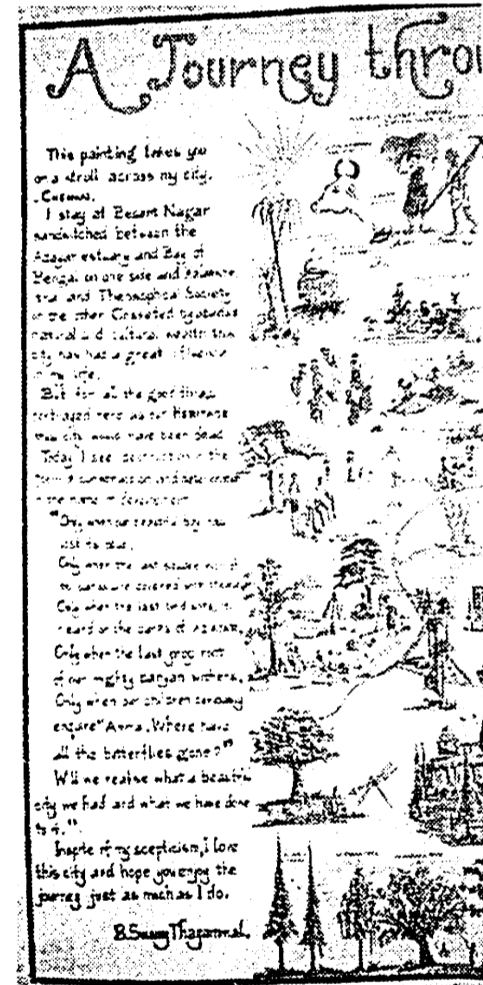 A Journey throu
This painting takes you
on a stroll across my city,
Chennai.
I stay at Besant Nagar
sandwitched between the
Adayar estuary and Bay of
Bengal on one side and
and Theosophical Society
on the other
natural and cultural wealth this
city has had a great influence
in my life.
But for all the good things
portrayed here as our Heritage
this city would have been dead
Today I see destruction in the
form of construction and
in the name of development
"Only when our beautiful bay has
lost its blue,
Only when the last square
covered with
Only when the last bird song is
heard on the banks of
Only when the last prop root
of our mighty banyan withers,
Only when our children
enquire "Amma, Where have
all the butterflies gone?"
Will we realise what a beautiful
city we had and what we have done
to it."
Inspite of my scepticism, I love
this city and hope you enjoy the
journey just as much as I do.